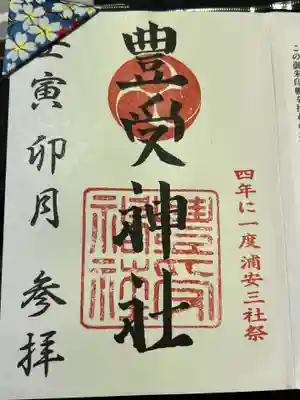 この御朱印帳を
四年に一度浦安三社祭
豊受神社
壬寅 卯月 参拝